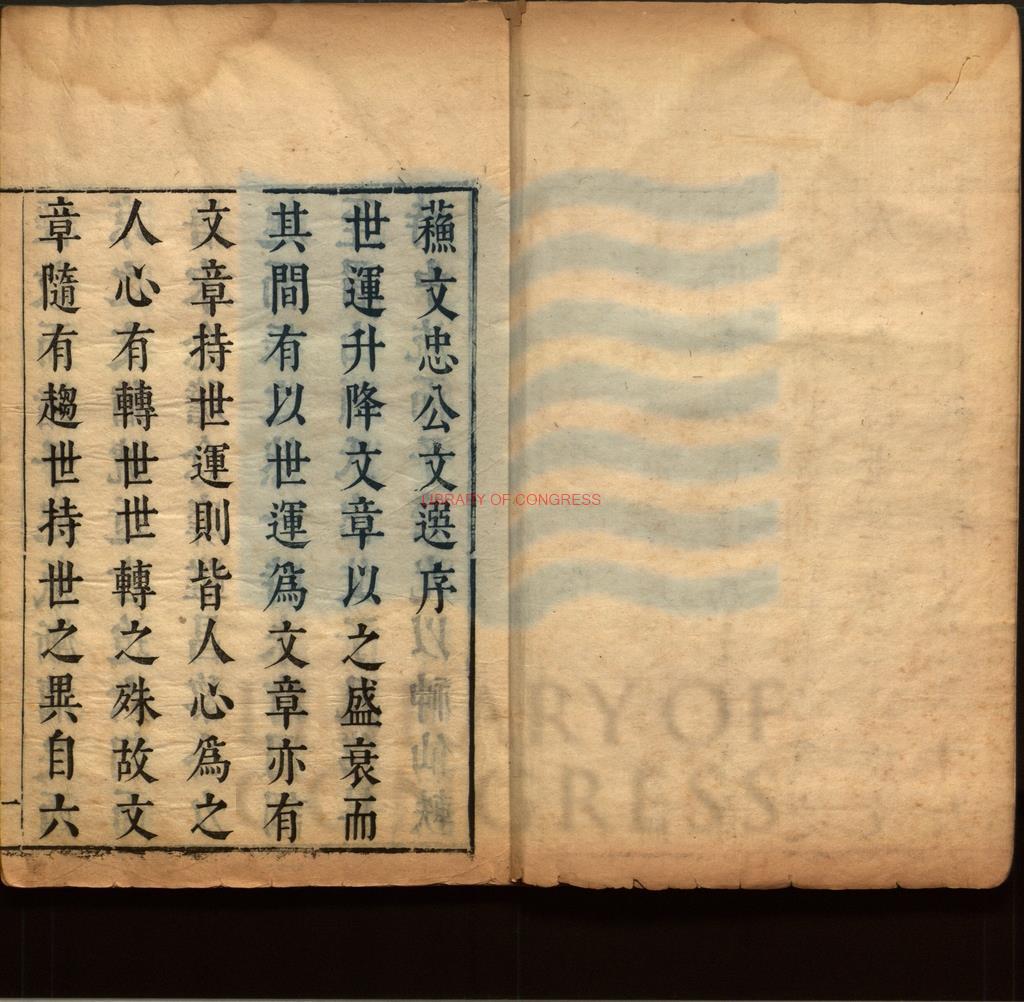 蘓文忠公文選序
世運升降文章以之盛衰而
其間有以世運為文章亦有
文章持世運則皆人心為之
人心有轉世世轉之殊故文
章隨有趨世持世之異自六
一
LIBRARY OF CONGRESS
LIBRARY OF
CONGRESS